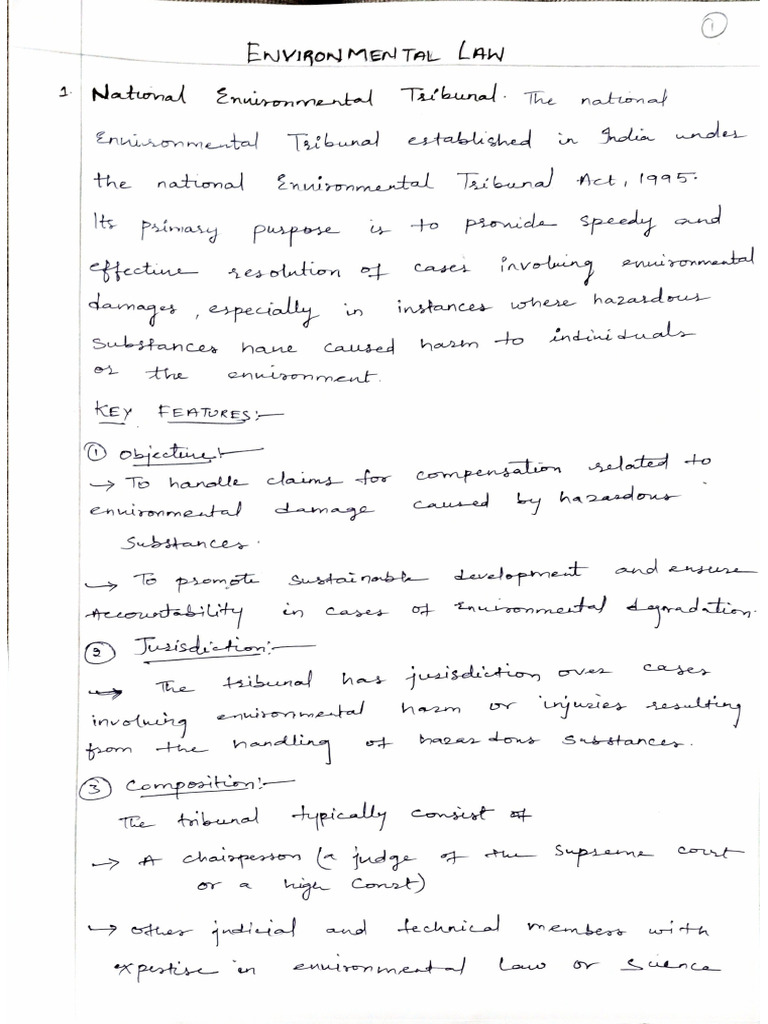 1
ENVIRONMENTAL LAW
1. National Environmental Tribunal. The national
Environmental Tribunal established in India under
the national Environmental Tribunal Act, 1995.
Its primary purpose is to provide speedy and
effective resolution of cases involving environmental
damages, especially in instances where hazardous
Substances have caused harm to individuals
or the environment.
KEY FEATURES:-
1 Objective:-
→ To handle claims for compensation related to
environmental damage caused by hazardous
Substances.
→ To promote sustainable development and ensure
Accountability in cases of Environmental degradation.
2 Jurisdiction:-
→ The tribunal has jurisdiction over cases
involving environmental harm or injuries resulting
from the handling of hazardous substances.
3 Composition:-
The tribunal typically consist of
→ A chairperson (a judge of the Supreme court
or a high Court)
→ Other judicial and technical members with
expertise in environmental Law or Science